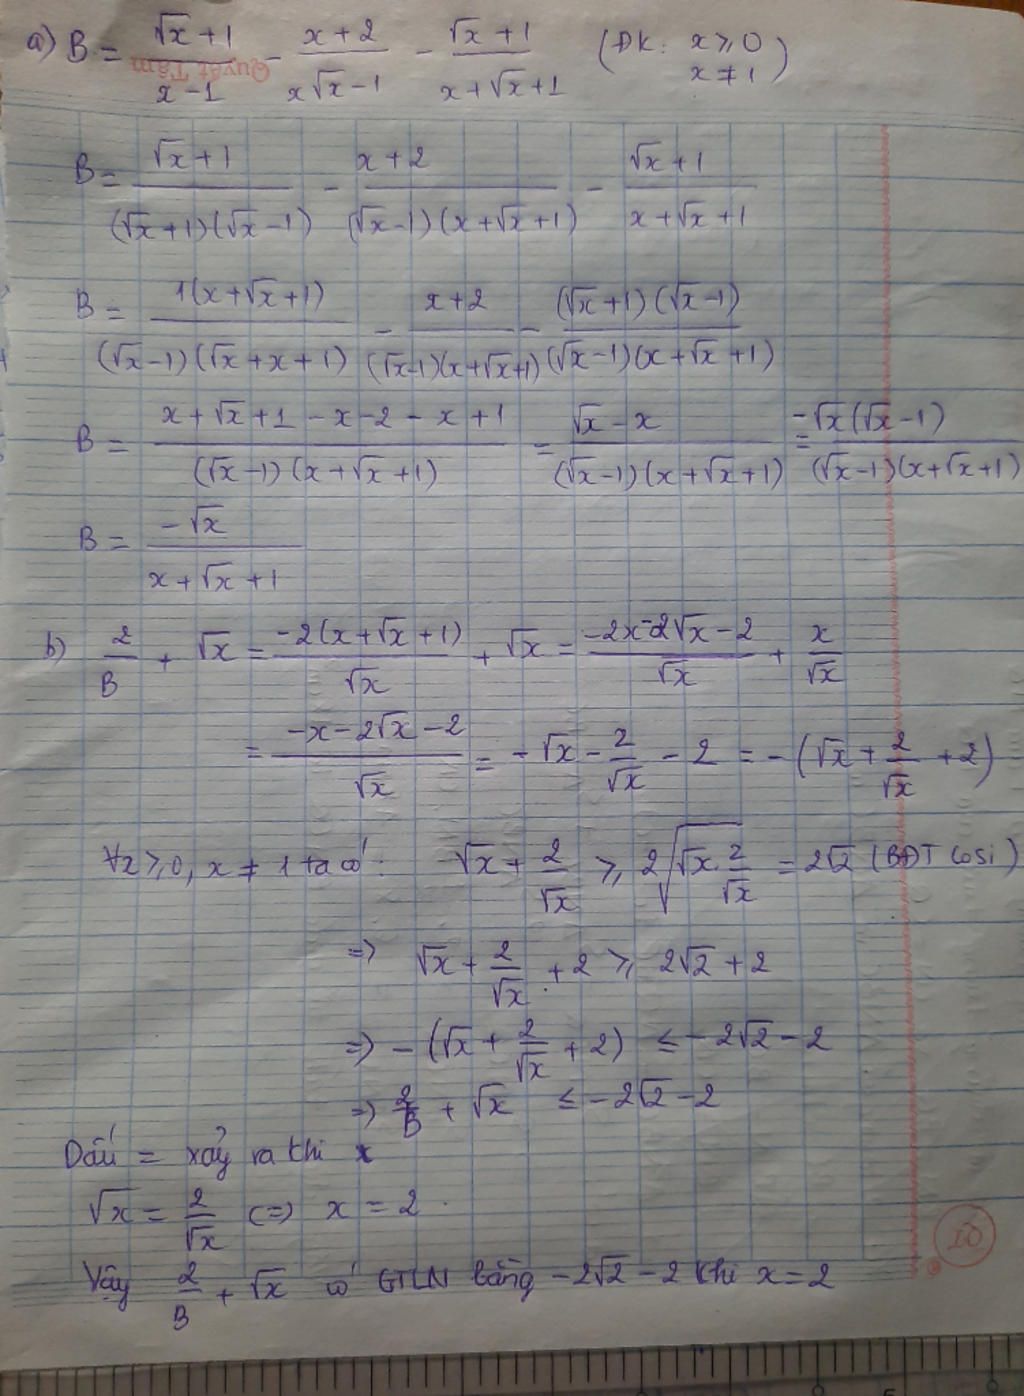 a) B = (√x + 1)/(x - 1) - (x + 2)/(x√x - 1) - (√x + 1)/(x + √x + 1) (ĐK: x ⩾ 0 x ≠ 1)
Quyết Tâm
B = (√x + 1)/((√x + 1)(√x - 1)) - (x + 2)/((√x - 1)(x + √x + 1)) - (√x + 1)/(x + √x + 1)
B = 1(x + √x + 1)/((√x - 1)(√x + x + 1)) - (x + 2)/((√x - 1)(x + √x + 1)) - (√x + 1)(√x - 1)/((√x - 1)(x + √x + 1))
B = (x + √x + 1 - x - 2 - x + 1)/((√x - 1)(x + √x + 1)) = (√x - x)/((√x - 1)(x + √x + 1)) = -√x(√x - 1)/((√x - 1)(x + √x + 1))
B = -√x/(x + √x + 1)
b) 2/B + √x = -2(x + √x + 1)/√x + √x = (-2x - 2√x - 2)/√x + x/√x
= (-x - 2√x - 2)/√x = -√x - 2/√x - 2 = -(√x + 2/√x + 2)
∀x ⩾ 0, x ≠ 1 ta có: √x + 2/√x ⩾ 2√(√x . 2/√x) = 2√2 (BĐT Cosi)
=> √x + 2/√x + 2 ⩾ 2√2 + 2
=> -(√x + 2/√x + 2) ≤ -2√2 - 2
=> 2/B + √x ≤ -2√2 - 2
Dấu = xảy ra khi x
√x = 2/√x <=> x = 2.
Vậy 2/B + √x có GTLN bằng -2√2 - 2 khi x = 2
10